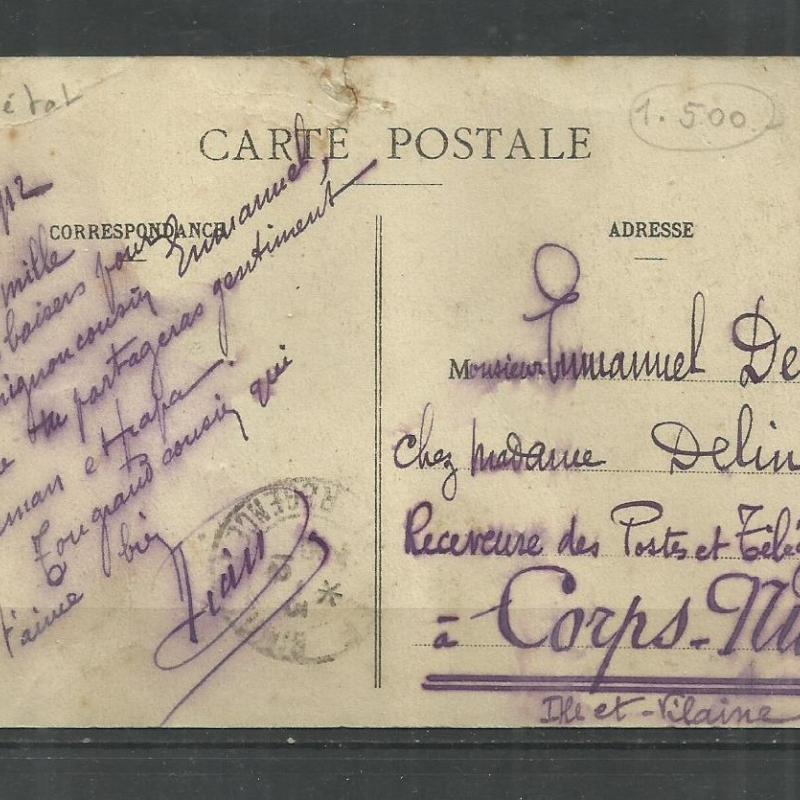 étal
1.500
CARTE POSTALE
CORRESPONDANCE
ADRESSE
12
mille
baisers pour
mignon cousin Emmanuel,
tu partageras gentiment
maman et papa.
Ton grand cousin qui
t'aime bien
Jean
Monsieur Emmanuel De
chez madame Delin
Receveuse des Postes et Télég
à Corps-Nu
Ille et-Vilaine